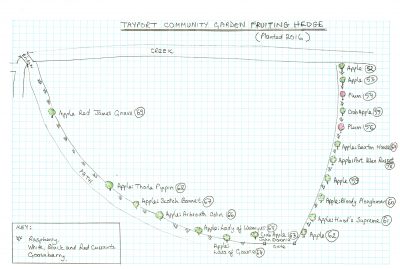 TAYPORT COMMUNITY GARDEN FRUITING HEDGE
(Planted 2016)
CREEK
Apple 52
Apple 53
Plum 54
Apple Red James Grieve 69
Crab Apple 55
Plum 56
Apple: Saxton House
Apple: Port Allen Russet
PATH
Apple: Thorle Pippin 68
Apple 59
Apple: Scotch Bonnet 67
Apple: Bloody Ploughman 60
Apple: Arbroath Oslin 66
Apple: Hood's Supreme 61
Apple: Lady of Wemyss 65
Apple 62
Apple:
Lass of Gowrie 64
Gate
KEY:
Raspberry
White, Black and Red Currants
Gooseberry